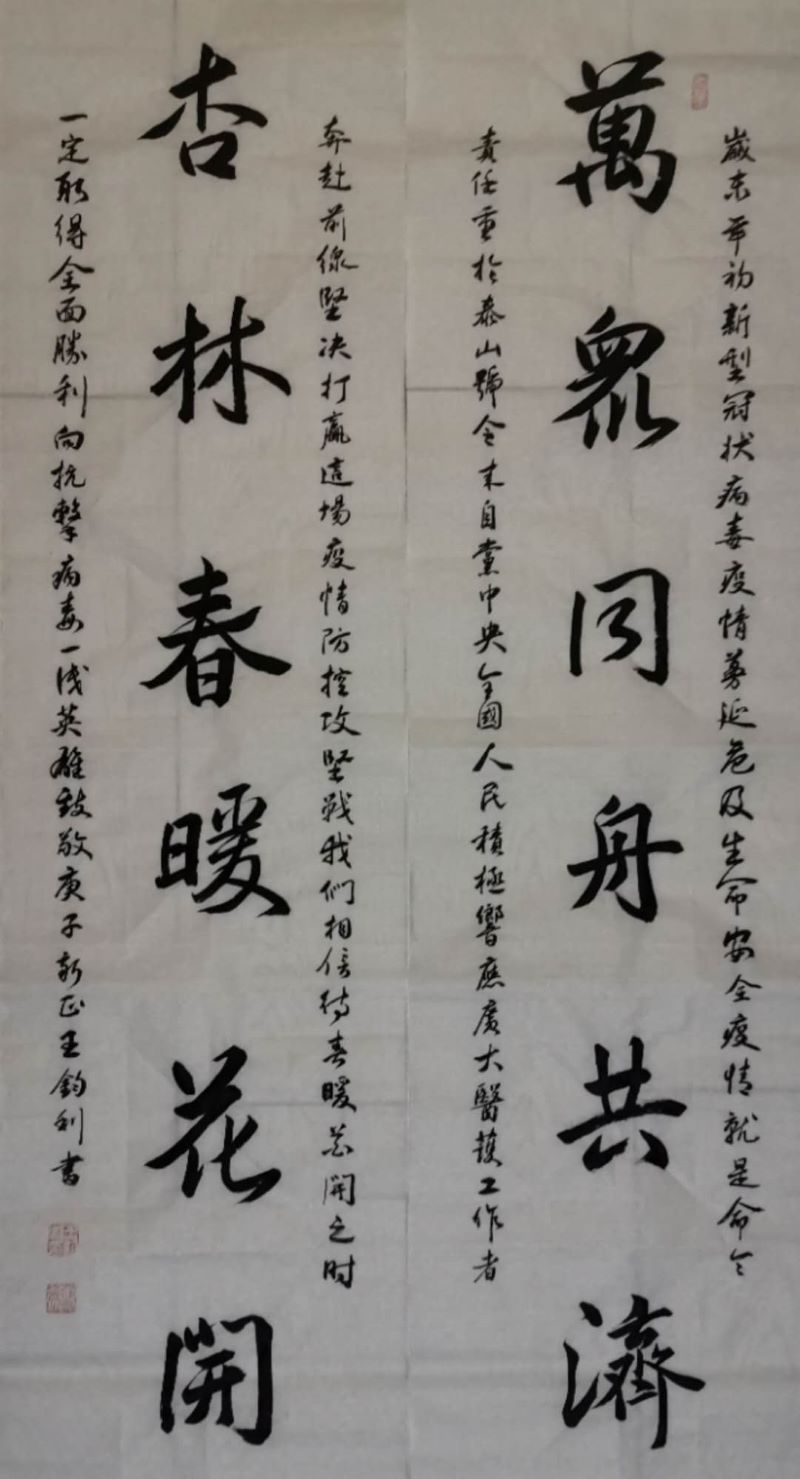 歲末年初新型冠狀病毒疫情蔓延危及生命安全疫情就是命令
萬眾同舟共濟
責任重於泰山號令来自黨中央全國人民積極響應廣大醫護工作者
奔赴前線堅决打贏這場疫情防控攻堅戰我們相信待春暖花開之时
杏林春暖花開
一定取得全面勝利向抗擊病毒一线英雄致敬庚子新正王鈞利書